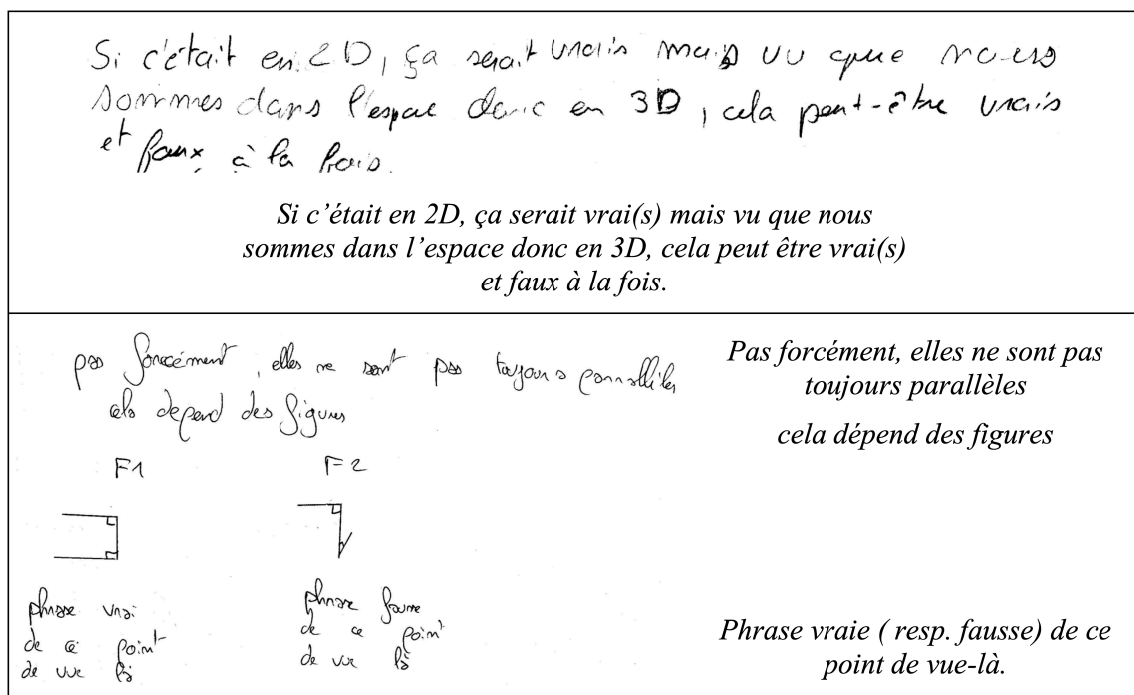 Si c'était en 2D, ça serait vrais mais vu que nous
sommes dans l'espace donc en 3D, cela peut-être vrais
et faux, à la fois.
Si c'était en 2D, ça serait vrai(s) mais vu que nous
sommes dans l'espace donc en 3D, cela peut être vrai(s)
et faux à la fois.
pas forcément, elles ne sont pas toujours parallèles
cela dépend des figures
F1 F2
phrase vrai
de ce point
de vue là
phrase fausse
de ce point
de vue là
Pas forcément, elles ne sont pas
toujours parallèles
cela dépend des figures
Phrase vraie ( resp. fausse) de ce
point de vue-là.